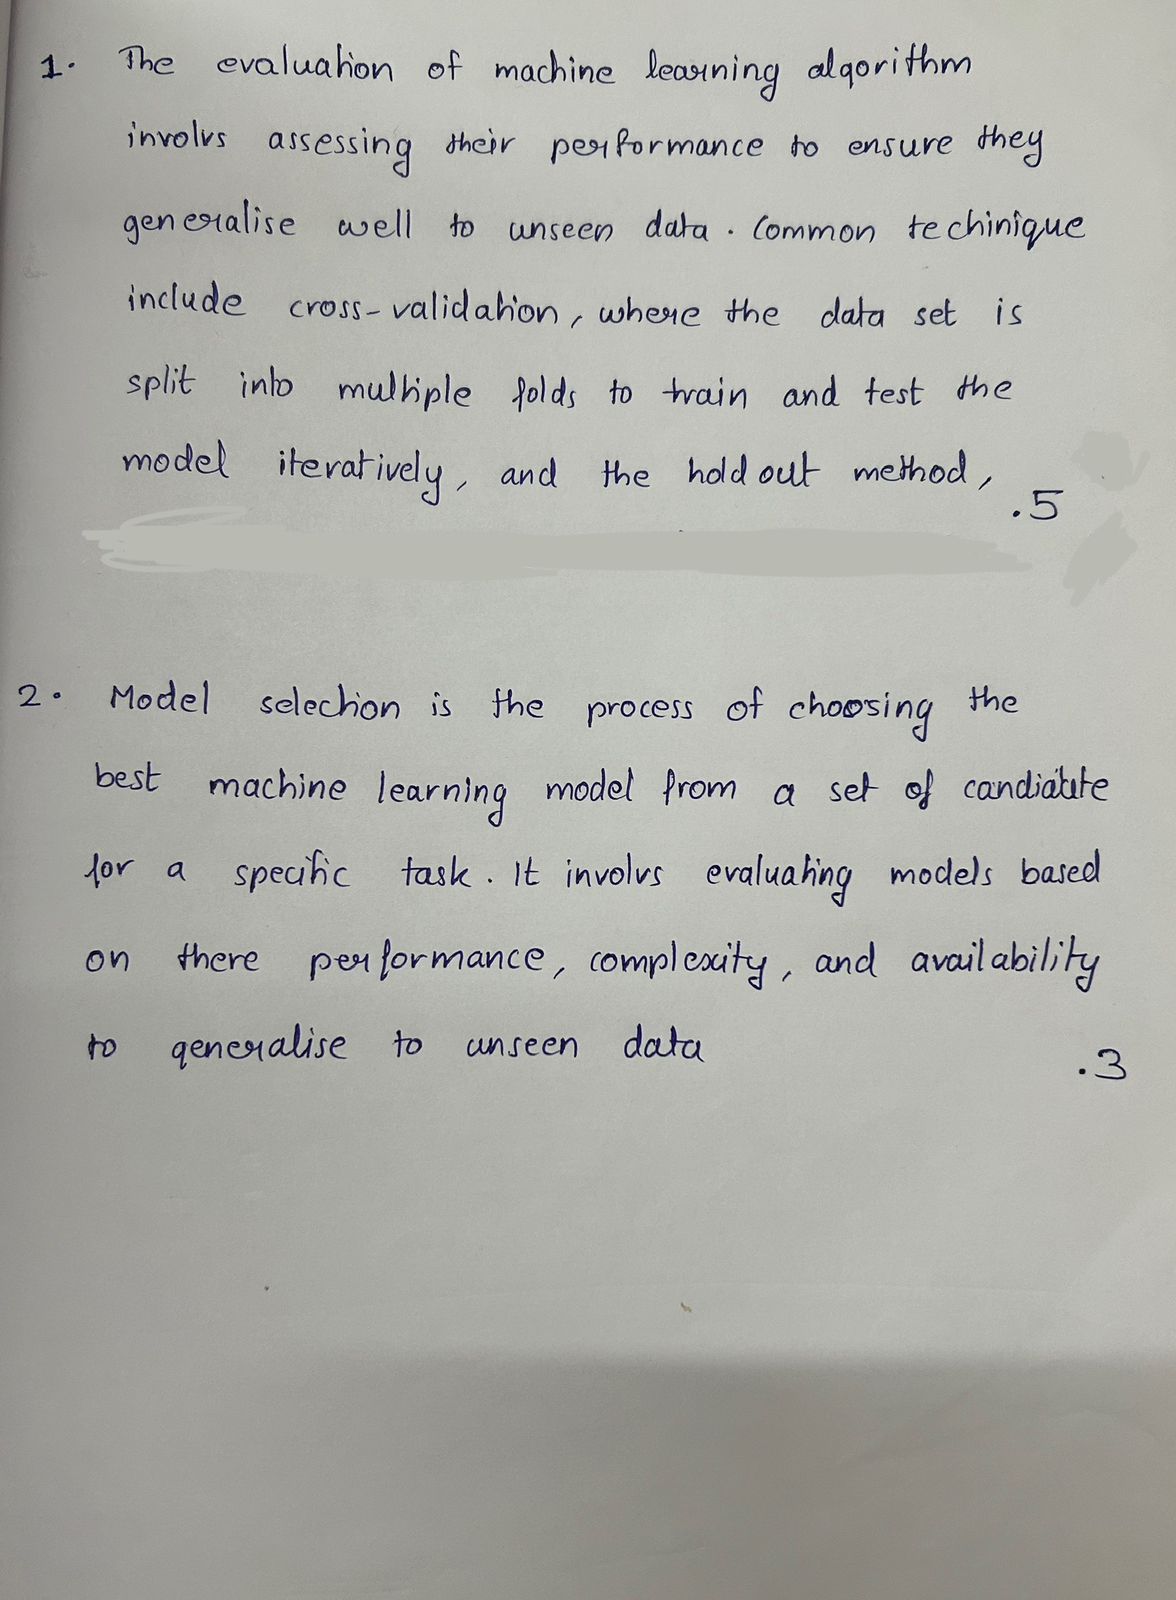 1. The evaluation of machine learning algorithm
involvs assessing their performance to ensure they
generalise well to unseen data. Common techinique
include cross-validation, where the data set is
split into multiple folds to train and test the
model iteratively, and the hold out method,
.5
2. Model selection is the process of choosing the
best machine learning model from a set of candidate
for a specific task. It involvs evaluating models based
on there performance, complexity, and availability
to generalise to unseen data
.3